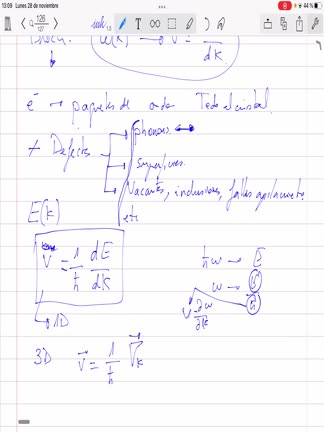 13:09 Lunes 28 de noviembre
44 %
126
127
Bloch. ω(k) → v =
dk
e⁻ → paquetes de onda Todo el cristal.
+ Defectos
phonons.
superficies.
Vacantes, inclusiones, fallas apilamiento.
etc
E(k)
v = 1/ħ dE/dk
ħω → E
ω →
v = ∂ω/∂k
→ 1D
3D v⃗ = 1/ħ ∇⃗k